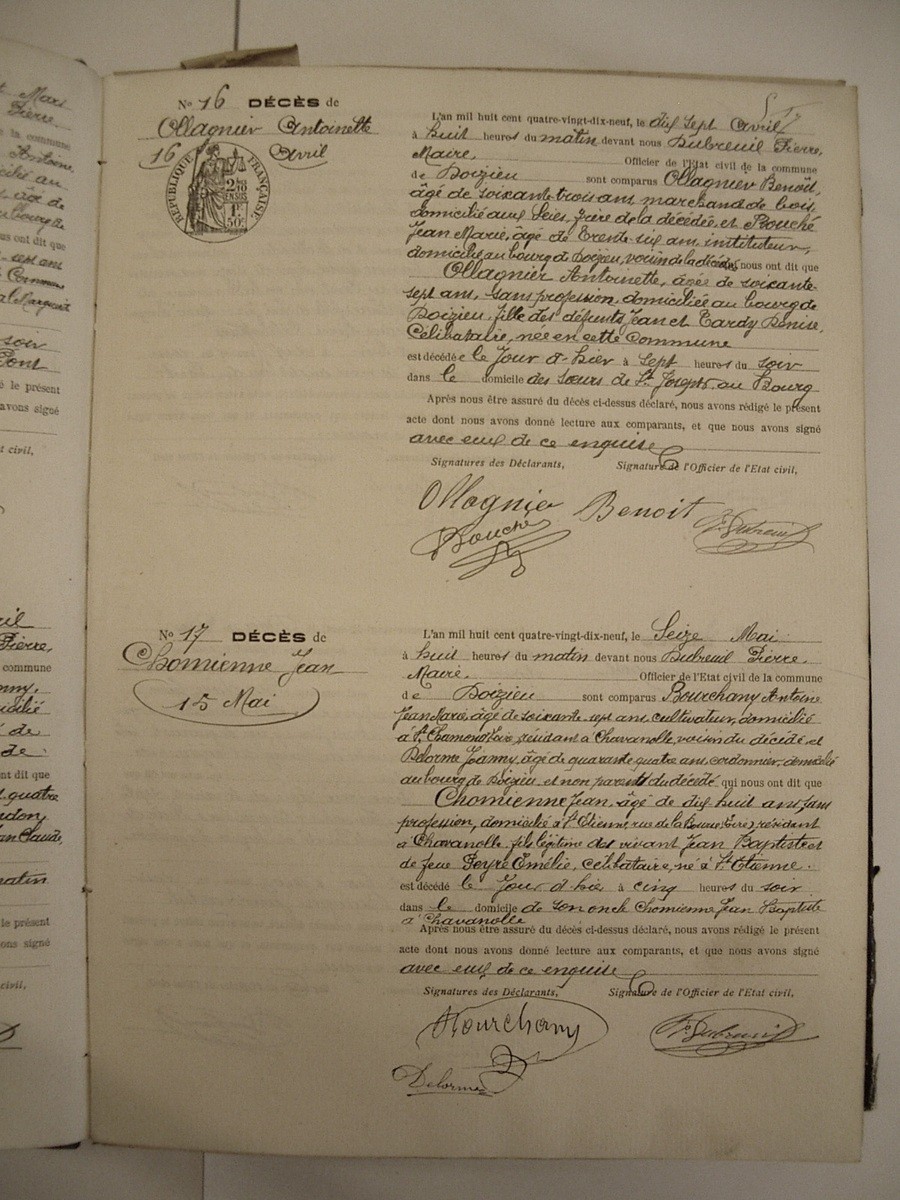 t Mari
Pierre,
la commune
Antoine
cilié au
âgé de
au bourg de
us ont dit que
sept ans
Commune
al Marguerite
soir
Pont
é le présent
avons signé
t civil,
il
Pierre,
commune
nny,
icilié
de
de
nt dit que
quatre
ndon,
Jean Claude,
matin
le présent
ons signé
civil,
No 16 DÉCÈS de
Ollagnier Antoinette
16 Avril
RÉPUBLIQUE FRANÇAISE
2/10
EN SUS
1F
50c
L'an mil huit cent quatre-vingt-dix-neuf, le dix sept Avril
à huit heures du matin devant nous Dubreuil Pierre,
Maire, Officier de l'Etat civil de la commune
de Doizieu sont comparus Ollagnier Benoît,
âgé de soixante trois ans marchand de bois,
domicilié aux Scies, frère de la décédée, et Bouché
Jean Marie, âgé de trente six ans, instituteur,
domicilié au bourg de Doizieu, voisin de la décédée, nous ont dit que
Ollagnier Antoinette, âgée de soixante
sept ans, sans profession, domiciliée au bourg de
Doizieu, fille des défunts Jean et Tardy Denise,
Célibataire, née en cette Commune
est décédée le Jour d'hier à sept heures du soir
dans le domicile des sœurs de St Joseph, au Bourg
Après nous être assuré du décès ci-dessus déclaré, nous avons rédigé le présent
acte dont nous avons donné lecture aux comparants, et que nous avons signé
avec eux de ce enquise
Signatures des Déclarants, Signature de l'Officier de l'Etat civil,
Ollagnier Benoit
Bouché
P. Dubreuil
No 17 DÉCÈS de
Chomienne Jean
15 Mai
L'an mil huit cent quatre-vingt-dix-neuf, le Seize Mai
à huit heures du matin devant nous Dubreuil Pierre,
Maire, Officier de l'Etat civil de la commune
de Doizieu sont comparus Bourchany Antoine
Jean Marie, âgé de soixante sept ans, cultivateur, domicilié
à St Chamond Loire, résidant à Chavanolle, voisin du décédé, et
Delorme Joanny, âgé de quarante quatre ans, cordonnier, domicilié
au bourg de Doizieu, et non parents du décédé qui nous ont dit que
Chomienne Jean, âgé de dix huit ans, sans
profession, domicilié à St Etienne, rue de la (Loire) résidant
à Chavanolle fils légitime des vivant Jean Baptiste et
de feue Peyre Emélie, célibataire, né à St Etienne.
est décédé le Jour d'hier à cinq heures du soir
dans le domicile de son oncle Chomienne Jean Baptiste
à Chavanolle
Après nous être assuré du décès ci-dessus déclaré, nous avons rédigé le présent
acte dont nous avons donné lecture aux comparants, et que nous avons signé
avec eux de ce enquise
Signatures des Déclarants, Signature de l'Officier de l'Etat civil,
Bourchany
P. Dubreuil
Delorme